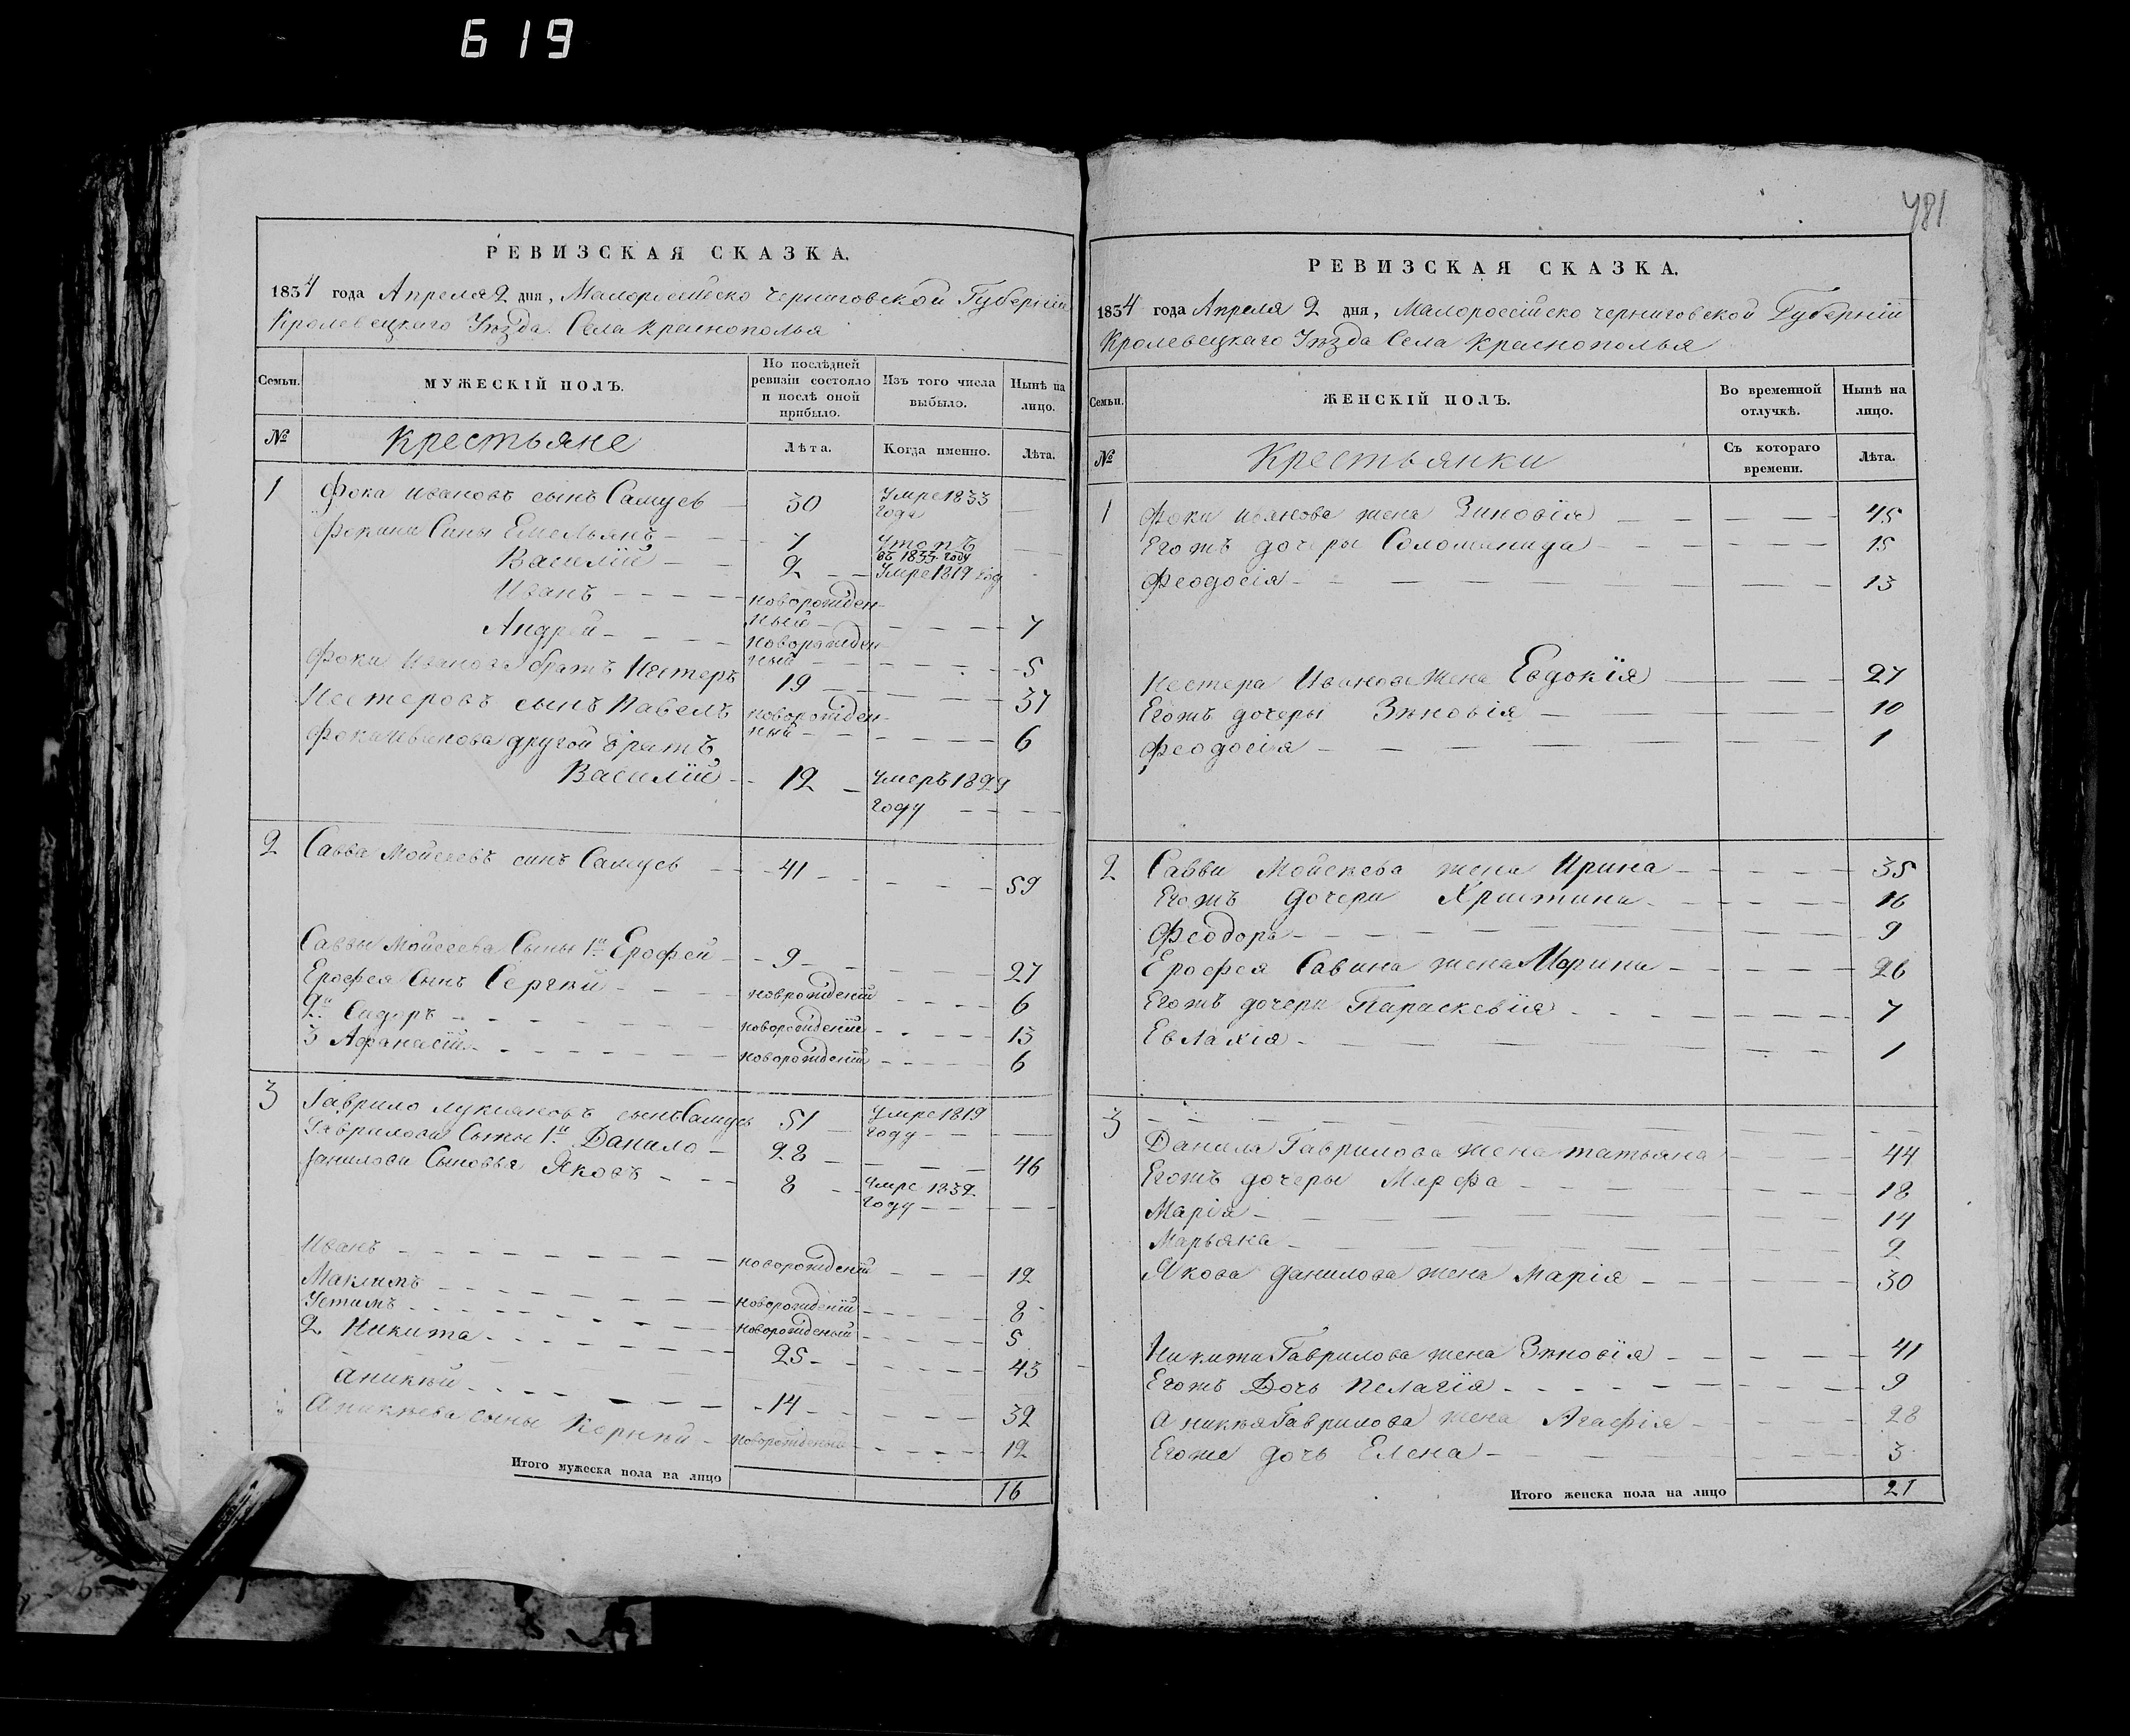 619
481
РЕВИЗСКАЯ СКАЗКА.
1834 года Апреля 2 дня, Малороссійско Черниговской Губерніи
Кролевецкаго Уѣзда Села Краснополья
Семьи. МУЖЕСКІЙ ПОЛЪ. По послѣдней ревизіи состояло и послѣ оной прибыло. Изъ того числа выбыло. Нынѣ на лицо.
№ Крестьяне Лѣта. Когда именно. Лѣта.
1 Фока Ивановъ сынъ Самусь 30 Умре 1833 года
Фокини Сины Емельянъ 7 Утопъ въ 1833 году
Василій 2 Умре 1819 год
Иванъ новорожденный 7
Андрей новорожденный 5
Фоки Иванова братъ Нестеръ 19 37
Нестеровъ сынъ Павелъ новорожденный 6
Фоки Иванова другой братъ
Василій 12 Умеръ 1829 году
2 Савва Мойсеевъ синъ Самусь 41 59
Саввы Мойсеева Сыны 1й Ерофей 9 27
Ерофея Сынъ Сергѣй новрожденій 6
2й Сидоръ новорожденій 13
3 Афанасій новорожденій 6
3 Гаврило Лукіяновъ сынъ Самусь 51 Умре 1819 году
Гаврилови Сыны 1й Данило 28 46
Данилови Сыновья Яковъ 8 Умре 1832 году
Иванъ новорожденій 12
Максимъ новорожденій 8
Устимъ новорожденый 5
2 Никита 25 43
Аникѣй 14 32
Аникѣева сыны Корнѣй новорожденый 12
Итого мужеска пола на лицо 16
РЕВИЗСКАЯ СКАЗКА.
1834 года Апреля 2 дня, Малороссійско Черниговской Губерніи
Кролевецкаго Уѣзда Села Краснополья
Семьи. ЖЕНСКІЙ ПОЛЪ. Во временной отлучкѣ. Нынѣ на лицо.
№ Крестьянки Съ котораго времени. Лѣта.
1 Фоки Иванова жена Зиновія 45
Егожъ дочеры Соломанида 15
Феодосія 13
Нестера Иванова жена Евдокія 27
Егожъ дочеры Зѣновія 10
Феодосія 1
2 Савви Мойсеева жена Ирина 35
Егожъ дочери Христина 16
Феодора 9
Ерофея Савина жена Марина 26
Егожъ дочери Параскевія 7
Евлахія 1
3
Данила Гаврилова жена татьяна 44
Егожъ дочеры Марфа 18
Марія 14
Марьяна 2
Якова Данилова жена Марія 30
Никити Гаврилова жена Зѣновія 41
Егожъ Дочь Пелагія 9
Аникѣя Гаврилова жена Агафія 28
Егоже дочь Елена 3
Итого женска пола на лицо 21